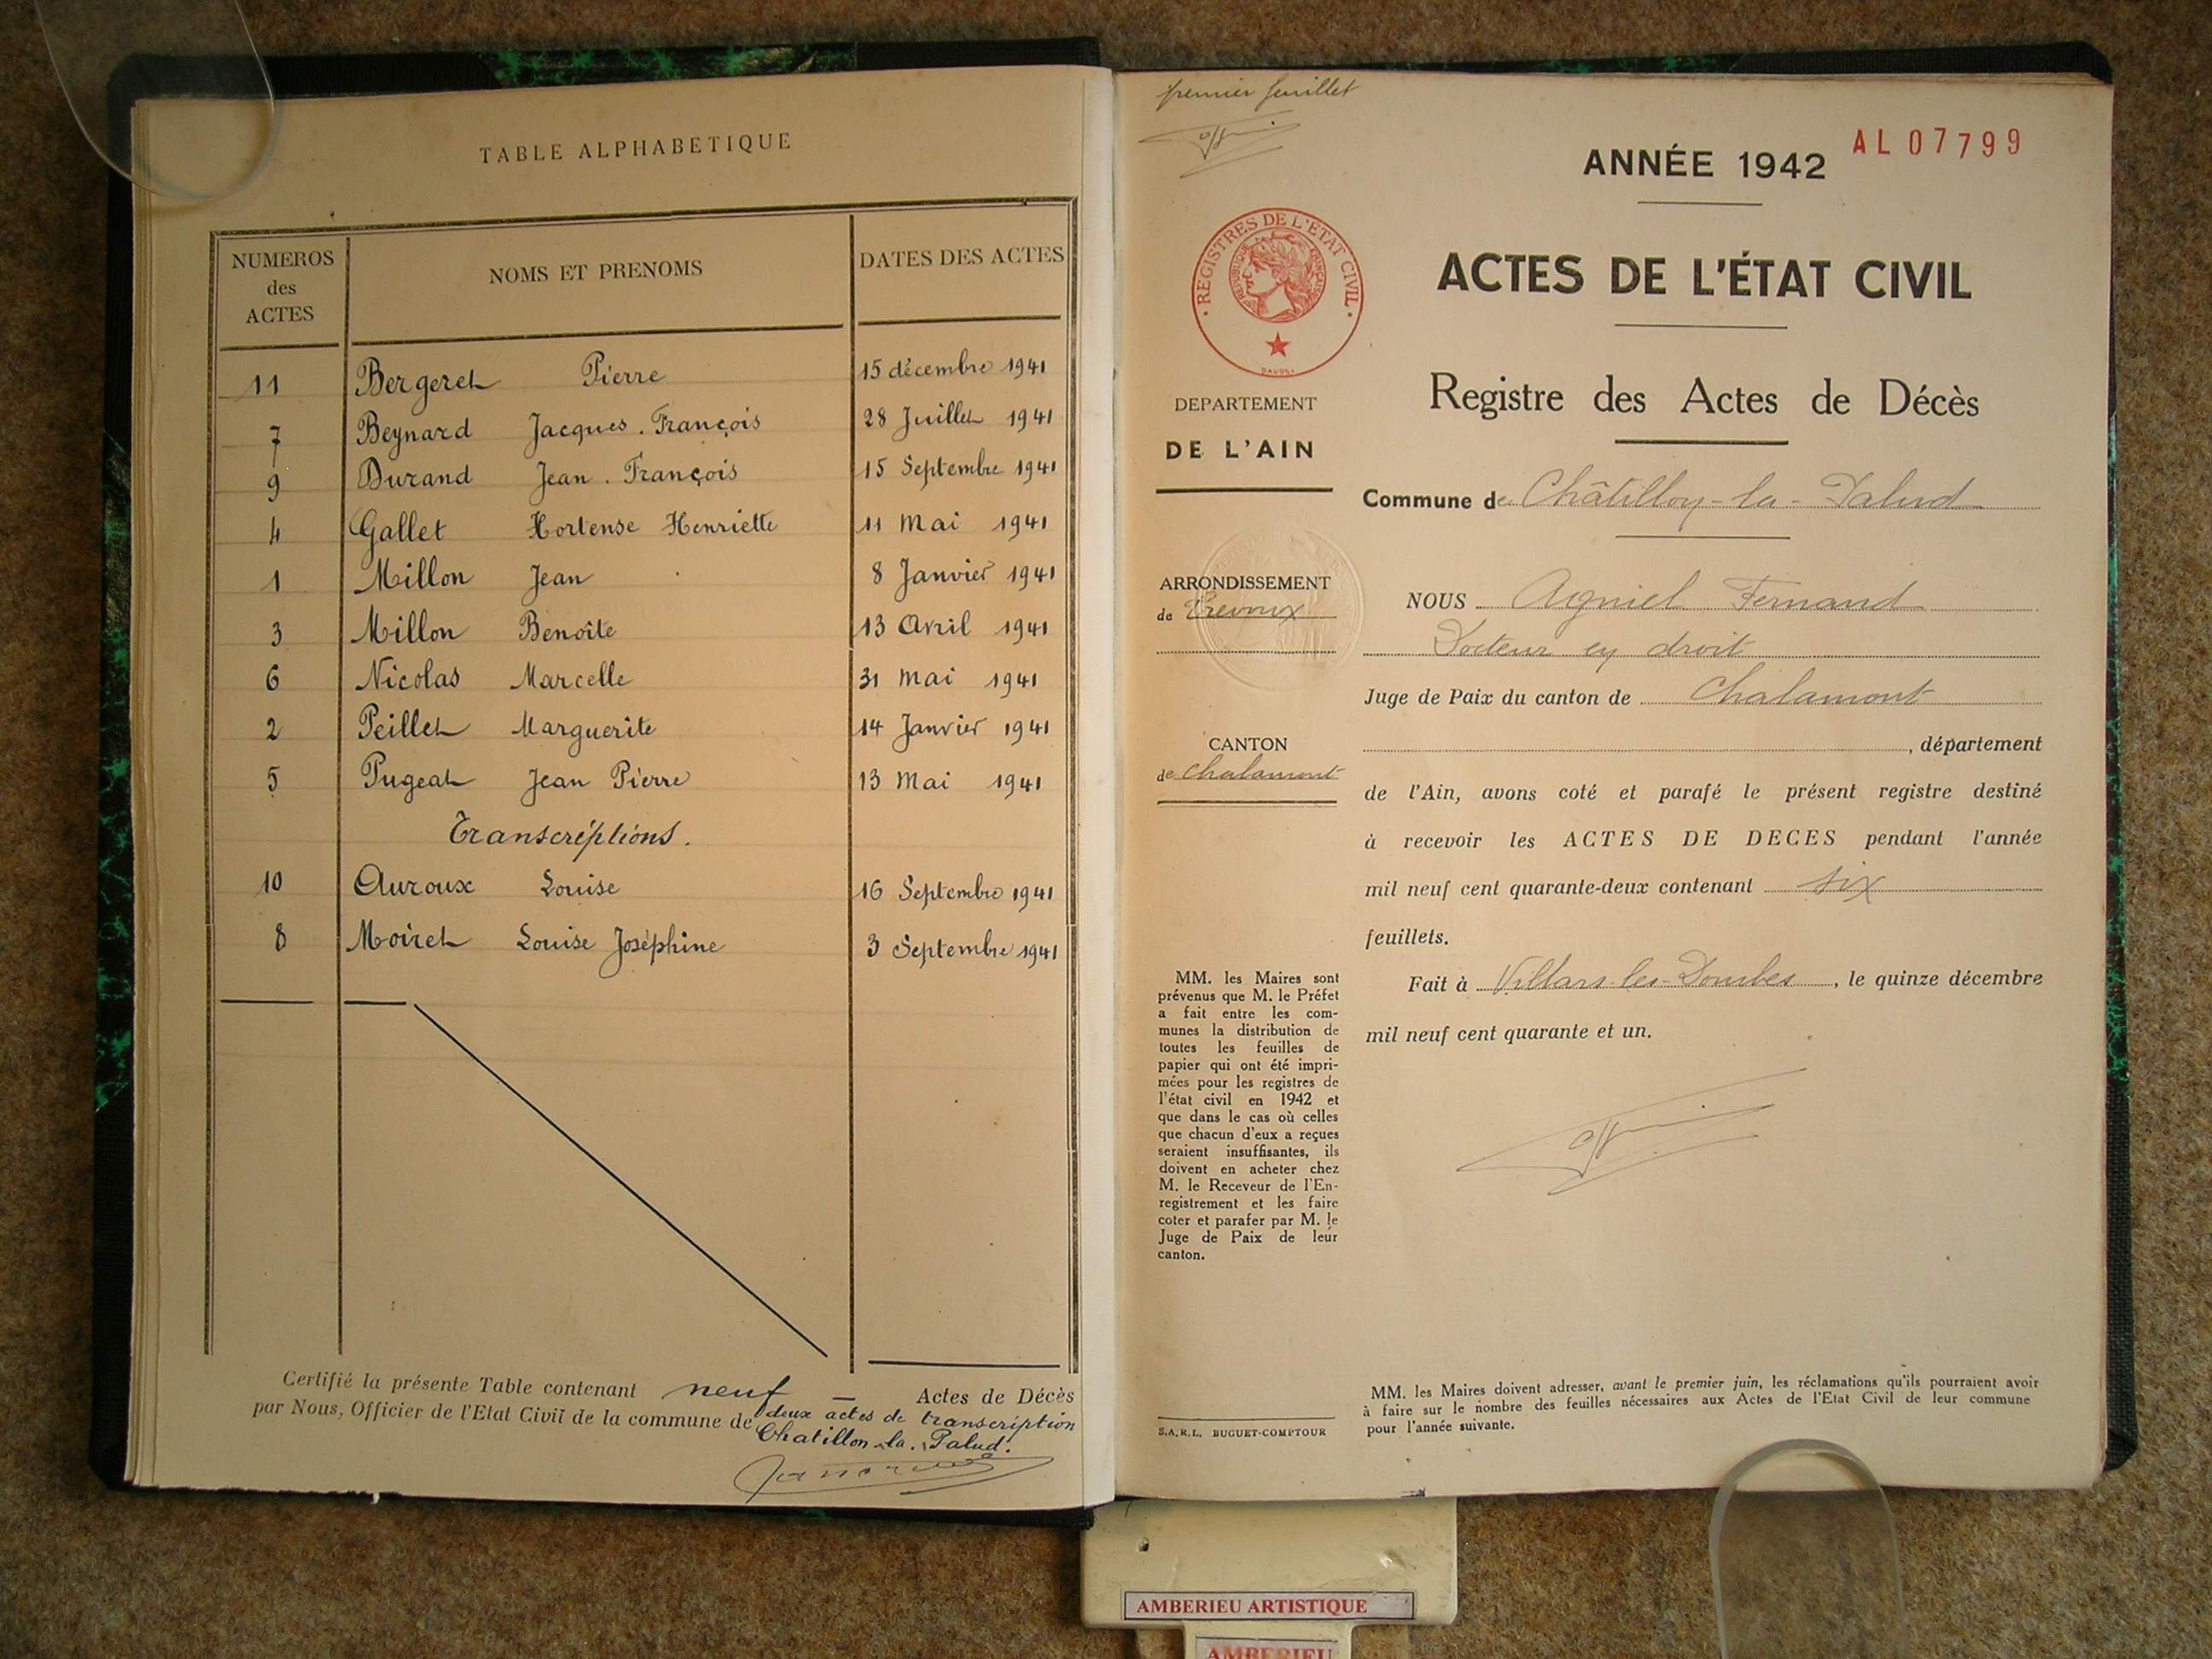 TABLE ALPHABETIQUE
NUMEROS des ACTES
NOMS ET PRENOMS
DATES DES ACTES
11 Bergeret Pierre 15 décembre 1941
7 Beynard Jacques. François 28 Juillet 1941
9 Durand Jean. François 15 Septembre 1941
4 Gallet Hortense Henriette 11 Mai 1941
1 Millon Jean 8 Janvier 1941
3 Millon Benoîte 13 Avril 1941
6 Nicolas Marcelle 31 Mai 1941
2 Peillet Marguerite 14 Janvier 1941
5 Pugeat Jean Pierre 13 Mai 1941
Transcriptions.
10 Auroux Louise 16 Septembre 1941
8 Moiret Louise Joséphine 3 Septembre 1941
Certifié la présente Table contenant neuf — Actes de Décès
deux actes de transcription
par Nous, Officier de l'Etat Civil de la commune de
Chatillon-la-Palud.
premier feuillet
ANNÉE 1942
AL 07799
REGISTRES DE L'ETAT CIVIL
REPUBLIQUE FRANÇAISE
ACTES DE L'ÉTAT CIVIL
Registre des Actes de Décès
DEPARTEMENT
DE L'AIN
Commune de Châtillon-la-Palud
ARRONDISSEMENT
de Trévoux
CANTON
de Chalamont
NOUS Agniel Fernand
Docteur en droit
Juge de Paix du canton de Chalamont
, département
de l'Ain, avons coté et parafé le présent registre destiné
à recevoir les ACTES DE DECES pendant l'année
mil neuf cent quarante-deux contenant six
feuillets.
Fait à Villars-les-Dombes, le quinze décembre
mil neuf cent quarante et un.
MM. les Maires sont
prévenus que M. le Préfet
a fait entre les com-
munes la distribution de
toutes les feuilles de
papier qui ont été impri-
mées pour les registres de
l'état civil en 1942 et
que dans le cas où celles
que chacun d'eux a reçues
seraient insuffisantes, ils
doivent en acheter chez
M. le Receveur de l'En-
registrement et les faire
coter et parafer par M. le
Juge de Paix de leur
canton.
S.A.R.L. BUGUET-COMPTOUR
MM. les Maires doivent adresser, avant le premier juin, les réclamations qu'ils pourraient avoir
à faire sur le nombre des feuilles nécessaires aux Actes de l'Etat Civil de leur commune
pour l'année suivante.
AMBERIEU ARTISTIQUE
AMBERIEU